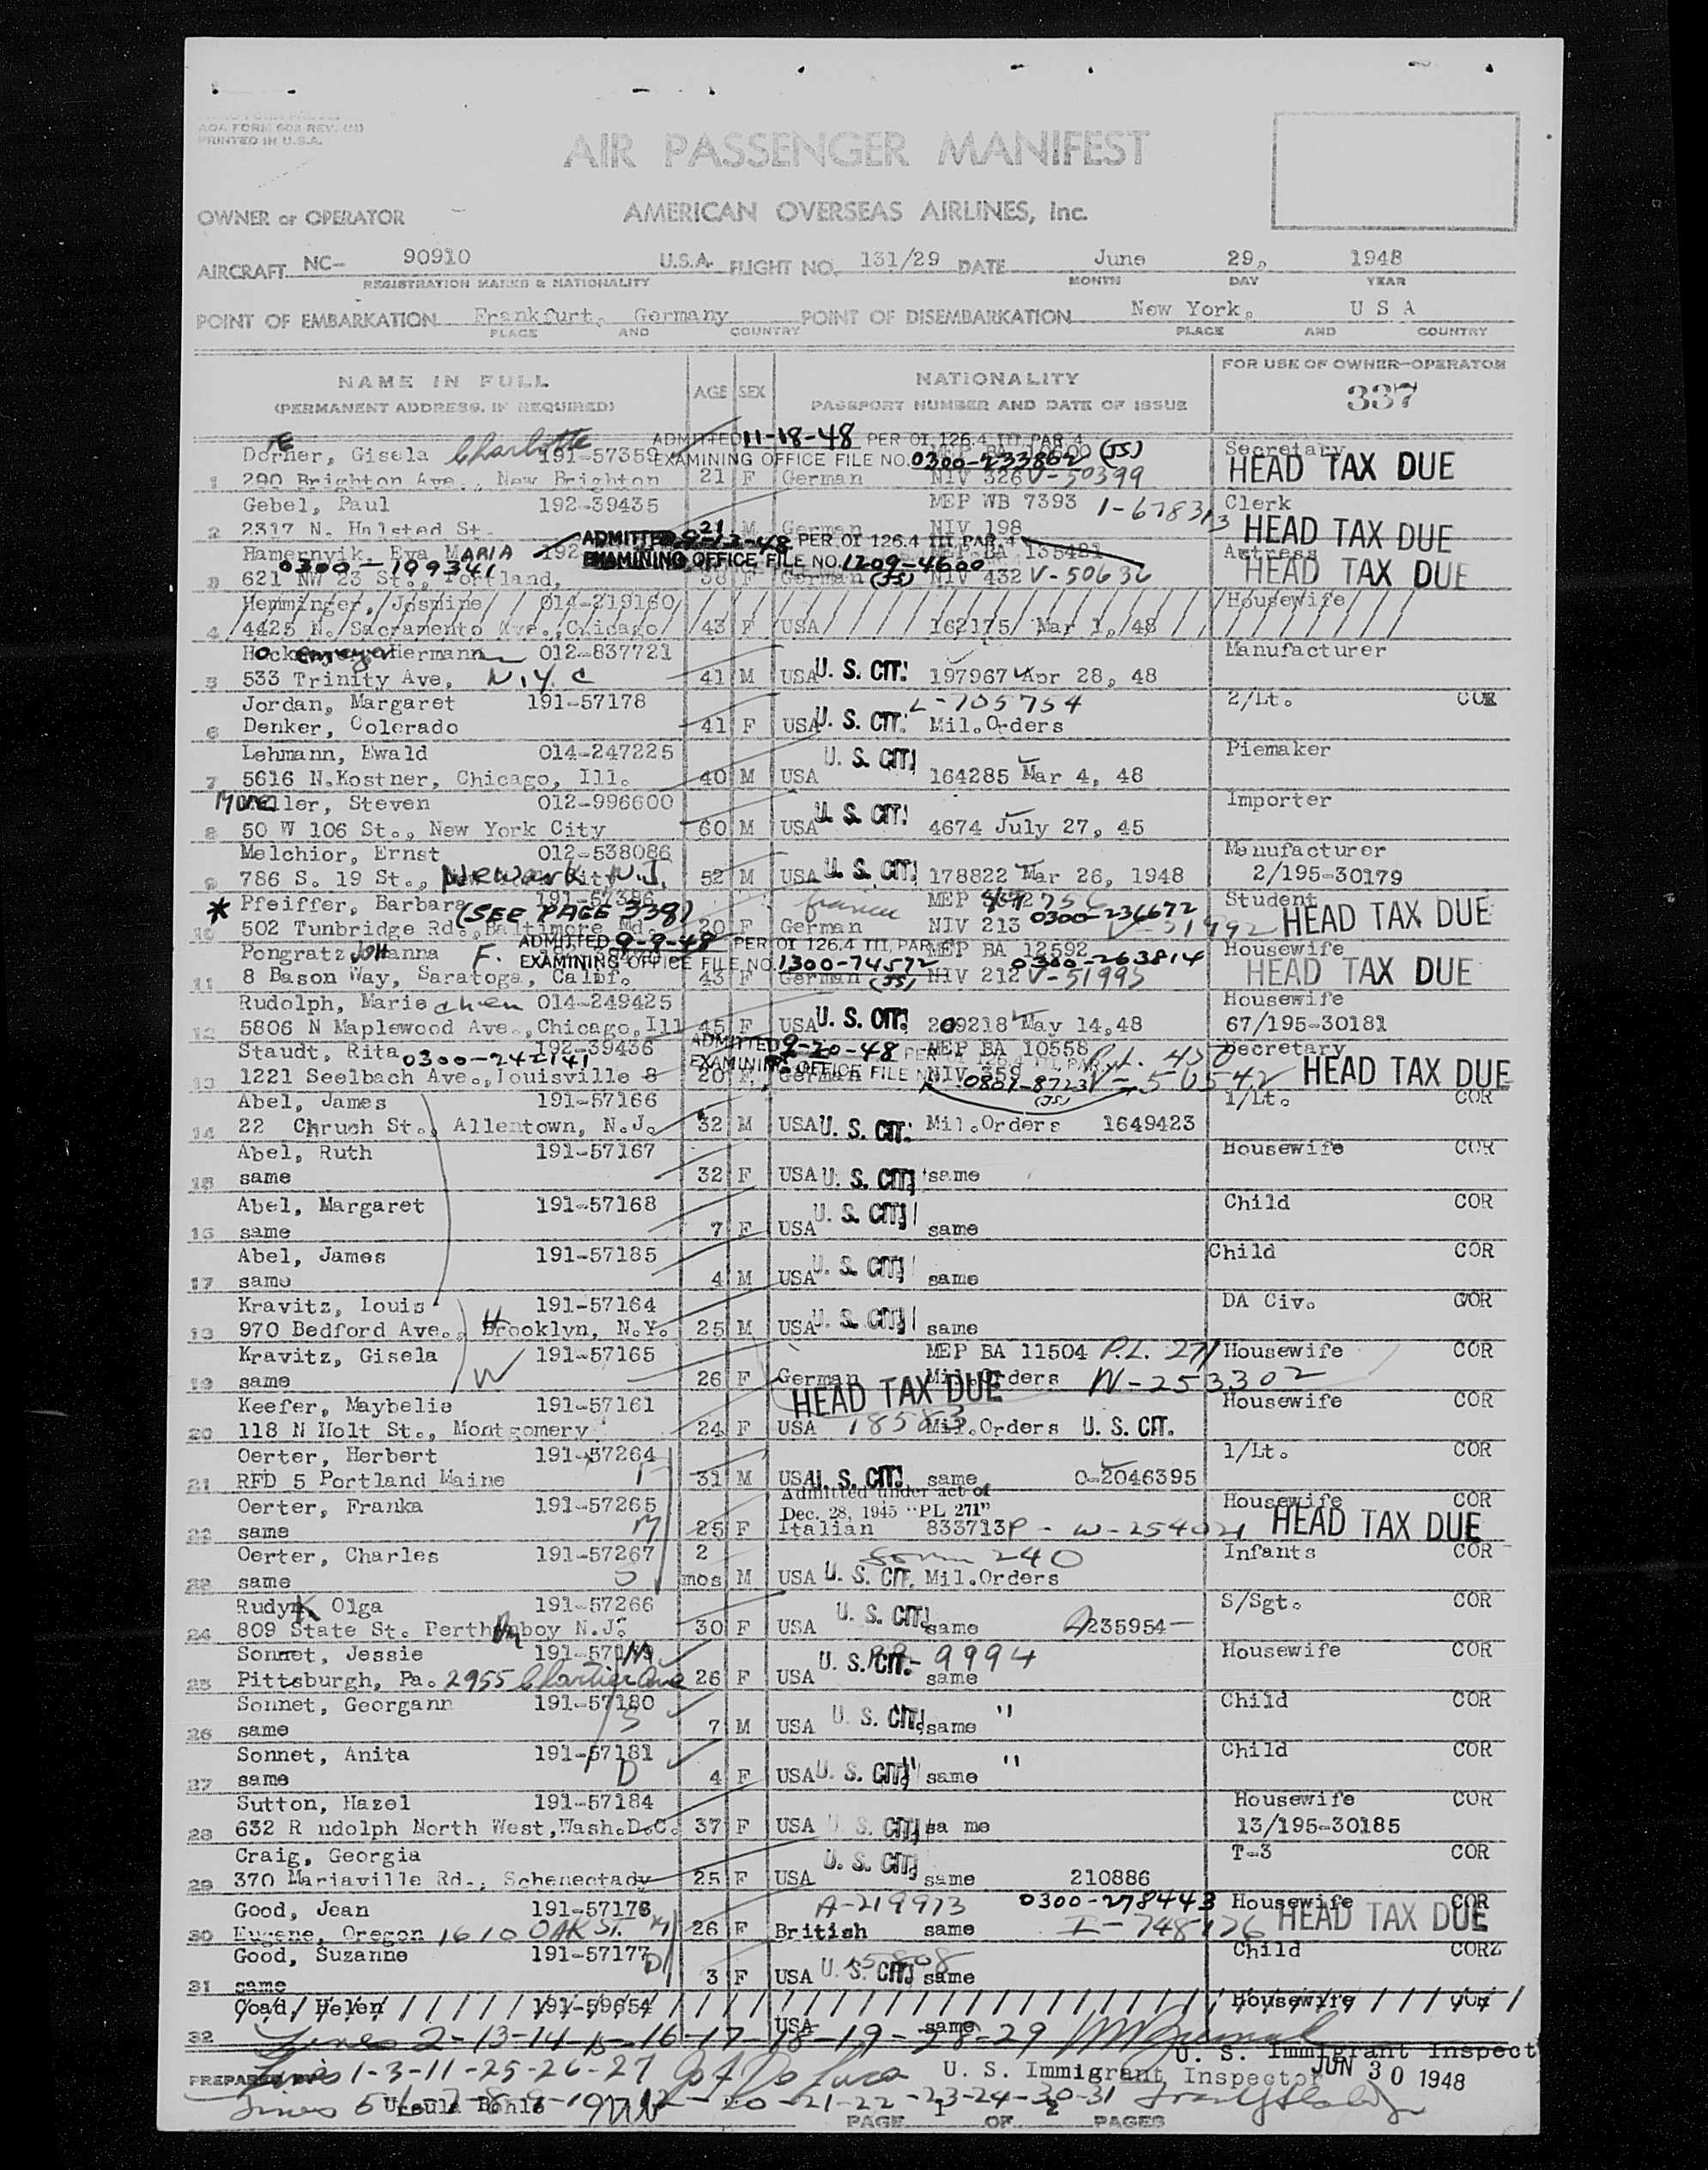 AOA FORM 608 REV. (11)
PRINTED IN U.S.A.
AIR PASSENGER MANIFEST
OWNER or OPERATOR
AMERICAN OVERSEAS AIRLINES, Inc.
AIRCRAFT NC- 90910 U.S.A. FLIGHT NO. 131/29 DATE June 29, 1948
REGISTRATION MARKS & NATIONALITY MONTH DAY YEAR
POINT OF EMBARKATION Frankfurt, Germany POINT OF DISEMBARKATION New York, U S A
PLACE AND COUNTRY PLACE AND COUNTRY
NAME IN FULL AGE SEX NATIONALITY FOR USE OF OWNER-OPERATOR
(PERMANENT ADDRESS, IF REQUIRED) PASSPORT NUMBER AND DATE OF ISSUE 337
ADMITTED 11-18-48 PER OI 126.4 III PAR. 4
Dorner, Gisela Charlotte 191-57359 EXAMINING OFFICE FILE NO. 0300-233862 (JS) Secretary
1 290 Brighton Ave., New Brighton 21 F German NIV 326 V-50399 HEAD TAX DUE
Gebel, Paul 192-39435 MEP WB 7393 1-678313 Clerk
2 2317 N. Halsted St. 21 M German NIV 198 HEAD TAX DUE
ADMITTED 9-13-48 PER OI 126.4 III PAR. 4
Hamernyik, Eva MARIA EXAMINING OFFICE FILE NO. 1209-4600 MEP BA 135481 Actress
0300-199341
3 621 NW 23 St., Portland, 38 F German (JS) NIV 432 V-50636 HEAD TAX DUE
Hemminger, Josmine 014-219160 Housewife
4 4425 N. Sacramento Ave., Chicago 43 F USA 162175 Mar 1, 48
Hermann 012-837721 Manufacturer
5 533 Trinity Ave, N.Y.C 41 M USA U. S. CIT. 197967 Apr 28, 48
Jordan, Margaret 191-57178 L-705754 2/Lt. COR
6 Denker, Colorado 41 F USA U. S. CIT. Mil.Orders
Lehmann, Ewald 014-247225 U. S. CIT. Piemaker
7 5616 N.Kostner, Chicago, Ill. 40 M USA 164285 Mar 4, 48
ller, Steven 012-996600 Importer
8 50 W 106 St., New York City 60 M USA U. S. CIT. 4674 July 27, 45
Melchior, Ernst 012-538086 Manufacturer
9 786 S. 19 St., Newark N.J. 52 M USA U. S. CIT. 178822 Mar 26, 1948 2/195-30179
* Pfeiffer, Barbara (SEE PAGE 338) MEP Student
10 502 Tunbridge Rd., Baltimore Md. 20 F German NIV 213 0300-236672 HEAD TAX DUE
ADMITTED 9-9-48 PER OI 126.4 III PAR. 4
Pongratz JOHanna F. EXAMINING OFFICE FILE NO. 1300-74572 MEP BA 12592 0300-263814 Housewife
11 8 Bason Way, Saratoga, Calif. 43 F German (JS) NIV 212 V-51995 HEAD TAX DUE
Rudolph, Marie chen 014-249425 Housewife
12 5806 N Maplewood Ave., Chicago, Ill 45 F USA U. S. CIT. 209218 May 14,48 67/195-30181
Staudt, Rita 0300-242141 192-39436 ADMITTED 9-20-48 PER MEP BA 10558 Secretary
13 1221 Seelbach Ave., Louisville 8 20 F German EXAMINING OFFICE FILE NO. NIV 359 0801-8723 HEAD TAX DUE
(JS)
Abel, James 191-57166 1/Lt. COR
14 22 Chruch St., Allentown, N.J. 32 M USA U. S. CIT. Mil.Orders 1649423
Abel, Ruth 191-57167 Housewife COR
15 same 32 F USA U. S. CIT. same
Abel, Margaret 191-57168 Child COR
16 same 7 F USA U. S. CIT. same
Abel, James 191-57185 Child COR
17 same 4 M USA U. S. CIT. same
Kravitz, Louis 191-57164 DA Civ. COR
18 970 Bedford Ave., Brooklyn, N.Y. H 25 M USA U. S. CIT. same
Kravitz, Gisela 191-57165 MEP BA 11504 P.L. 271 Housewife COR
19 same W 26 F German Mil.Orders W-253302
HEAD TAX DUE
Keefer, Maybelie 191-57161 Housewife COR
20 118 N Holt St., Montgomery 24 F USA 18583 Mil.Orders U. S. CIT.
Oerter, Herbert 191-57264 1/Lt. COR
21 RFD 5 Portland Maine F 31 M USA U. S. CIT. same 0-2046395
Admitted under act of
Oerter, Franka 191-57265 Dec. 28, 1945 "PL 271" Housewife COR
22 same M 25 F Italian 833713P - W-254021 HEAD TAX DUE
Oerter, Charles 191-57267 2 Form 240 Infants COR
23 same S mos M USA U. S. CIT. Mil.Orders
RudyK Olga 191-57266 S/Sgt. COR
24 809 State St. Perth Amboy N.J. 30 F USA U. S. CIT. same 235954
Sonnet, Jessie M 9994 Housewife COR
25 Pittsburgh, Pa. 2955 Chartier Ave 26 F USA U. S. CIT. same
Sonnet, Georgann 191-57180 Child COR
26 same S 7 M USA U. S. CIT. same "
Sonnet, Anita 191-57181 Child COR
27 same D 4 F USA U. S. CIT. same "
Sutton, Hazel 191-57184 Housewife COR
28 632 R udolph North West,Wash.D.C. 37 F USA U. S. CIT. sa me 13/195-30185
Craig, Georgia U. S. CIT. T-3 COR
29 370 Mariaville Rd., Schenectady 25 F USA same 210886
Good, Jean 191-57176 A-219973 0300-278443 Housewife COR
30 Eugene, Oregon 1610 OAK ST. M 26 F British same I-748126 HEAD TAX DUE
Good, Suzanne 191-57177 D Child COR
31 same 3 F USA U. S. CIT. same
Coad, Helen 191-59654 Housewife COR
32 USA same
Lines 2-13-14-15-16-17-18-19-28-29
U. S. Immigrant Inspect
PREPARED BY Lines 1-3-11-25-26-27 U. S. Immigrant Inspector JUN 30 1948
Lines Ursula -20-21-22-23-24-30-31
PAGE 1 OF 2 PAGES